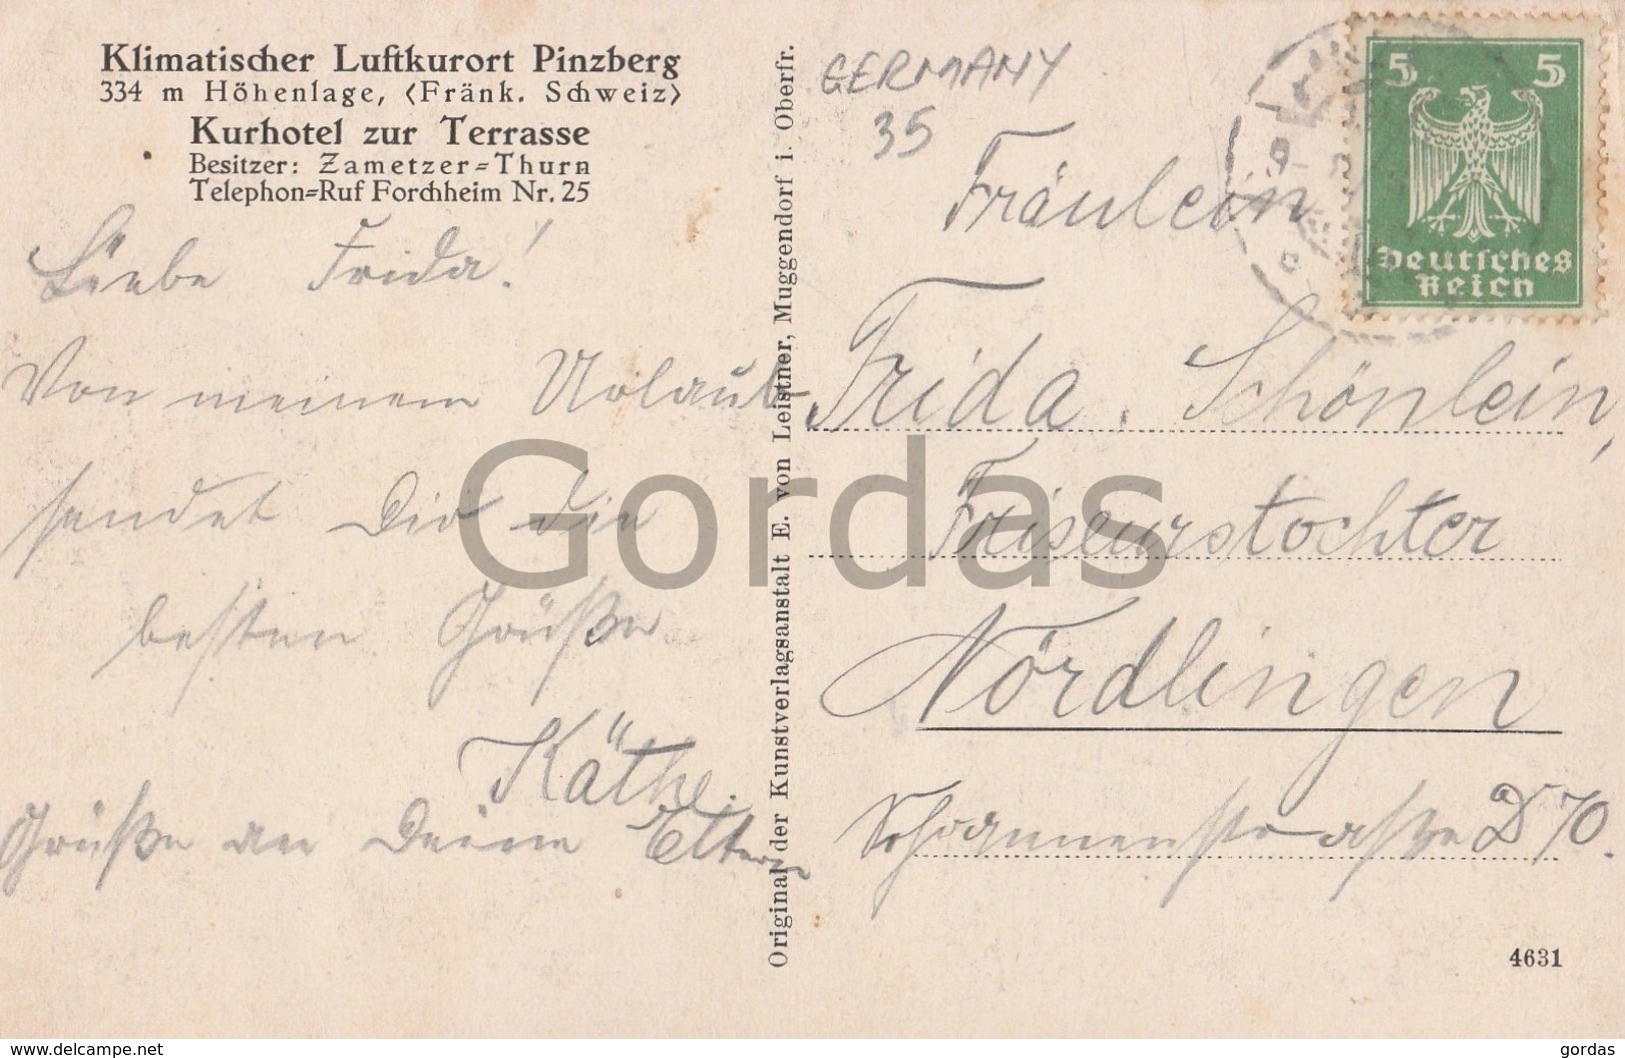 Klimatischer Luftkurort Pinzberg
334 m Höhenlage, (Fränk. Schweiz)
Kurhotel zur Terrasse
Besitzer: Zametzer=Thurn
Telephon=Ruf Forchheim Nr. 25
Liebe Frida!
Von meinem Urlaub
sendet Dir die
besten Grüße
Käthe.
Grüße an Deine Eltern
Original der Kunstverlagsanstalt E. von Leistner, Muggendorf i. Oberfr.
GERMANY
35
5 5
Deutsches
Reich
Fräulein
Frida Schönlein,
Friseurstochter
Nördlingen
D 70.
4631
Gordas
www.delcampe.net
gordas